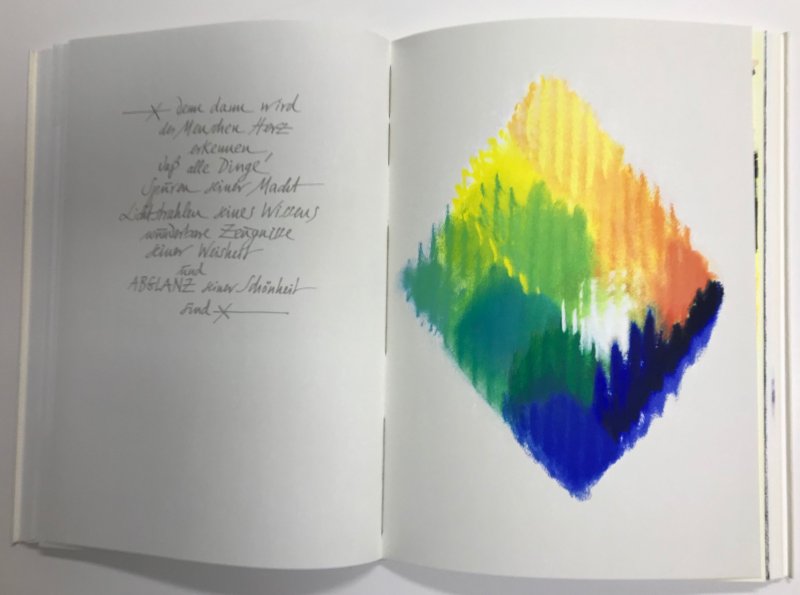 denn dann wird
des Menschen Herz
erkennen,
daß alle Dinge
Spuren seiner Macht
Lichtstrahlen seines Wissens
wunderbare Zeugnisse
seiner Weisheit
und
ABGLANZ seiner Schönheit
sind